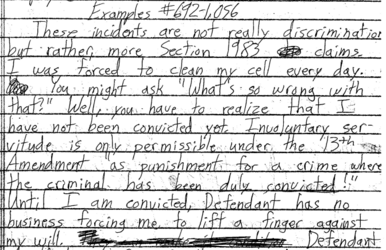 Examples #692-1,056
These incidents are not really discrimination
but rather, more Section 1983 claims.
I was forced to clean my cell every day.
You might ask "What's so wrong with
that?" Well, you have to realize that I
have not been convicted yet. Involuntary ser-
vitude is only permissible under the 13th
Amendment "as punishment for a crime where
the criminal has been duly convicted!"
Until I am convicted, Defendant has no
business forcing me to lift a finger against
my will. Defendant